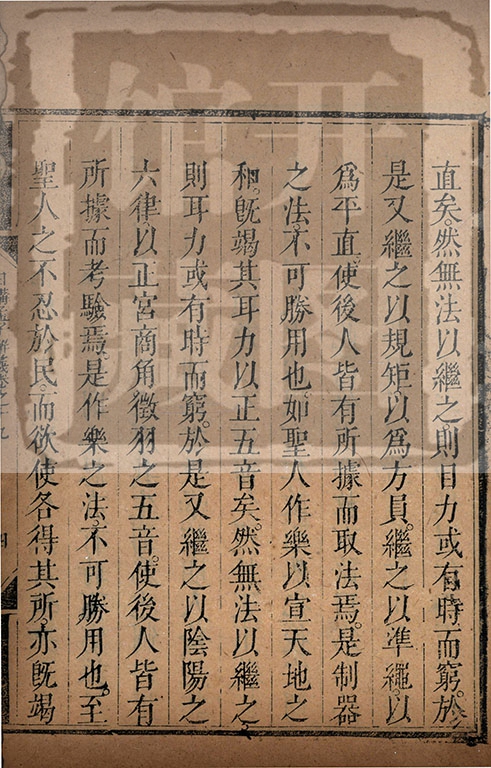 直矣。然無法以繼之。則目力或有時而窮。於
是又繼之以規矩。以為方員。繼之以準繩。以
爲平直。使後人皆有所據而取法焉。是制器
之法。不可勝用也。如聖人作樂以宣天地之
和。旣竭其耳力以正五音矣。然無法以繼之。
則耳力或有時而窮。於是又繼之以陰陽之
六律以正宮商角徵羽之五音。使後人皆有
所據而考驗焉。是作樂之法。不可勝用也。至
聖人之不忍於民而欲使各得其所。亦旣竭